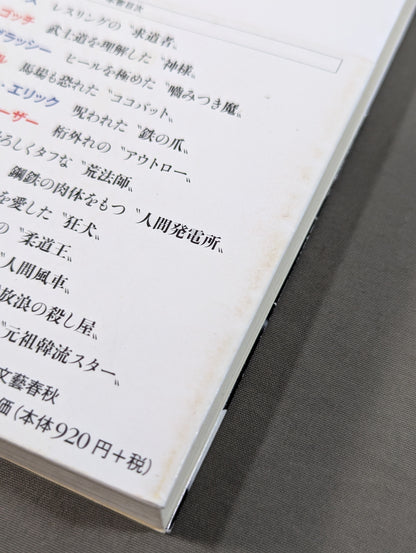 ス レスリングの〝求道者〟
ゴッチ 武士道を理解した〝神様〟
ブラッシー ヒールを極めた〝噛みつき魔〟
ル 馬場も恐れた〝ココバット〟
・エリック 呪われた〝鉄の爪〟
ーザー 桁外れの〝アウトロー〟
ろしくタフな〝荒法師〟
鋼鉄の肉体をもつ〝人間発電所〟
を愛した〝狂犬〟
の〝柔道王〟
〝人間風車〟
放浪の殺し屋〟
〝元祖韓流スター〟
文藝春秋
価(本体920円+税)